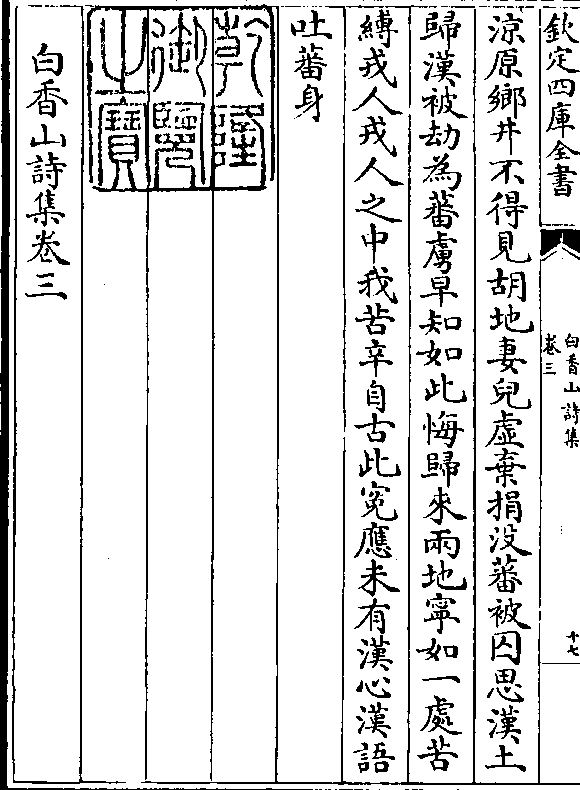 欽定四庫全書
白香山詩集
卷三
十七
涼原鄉井不得見胡地妻兒虛棄捐沒蕃被囚思漢土
歸漢被刼為蕃虜早知如此悔歸來兩地寧如一處苦
縛戎人戎人之中我苦辛自古此冤應未有漢心漢語
吐蕃身
乾隆
御覽
之寶
白香山詩集卷三